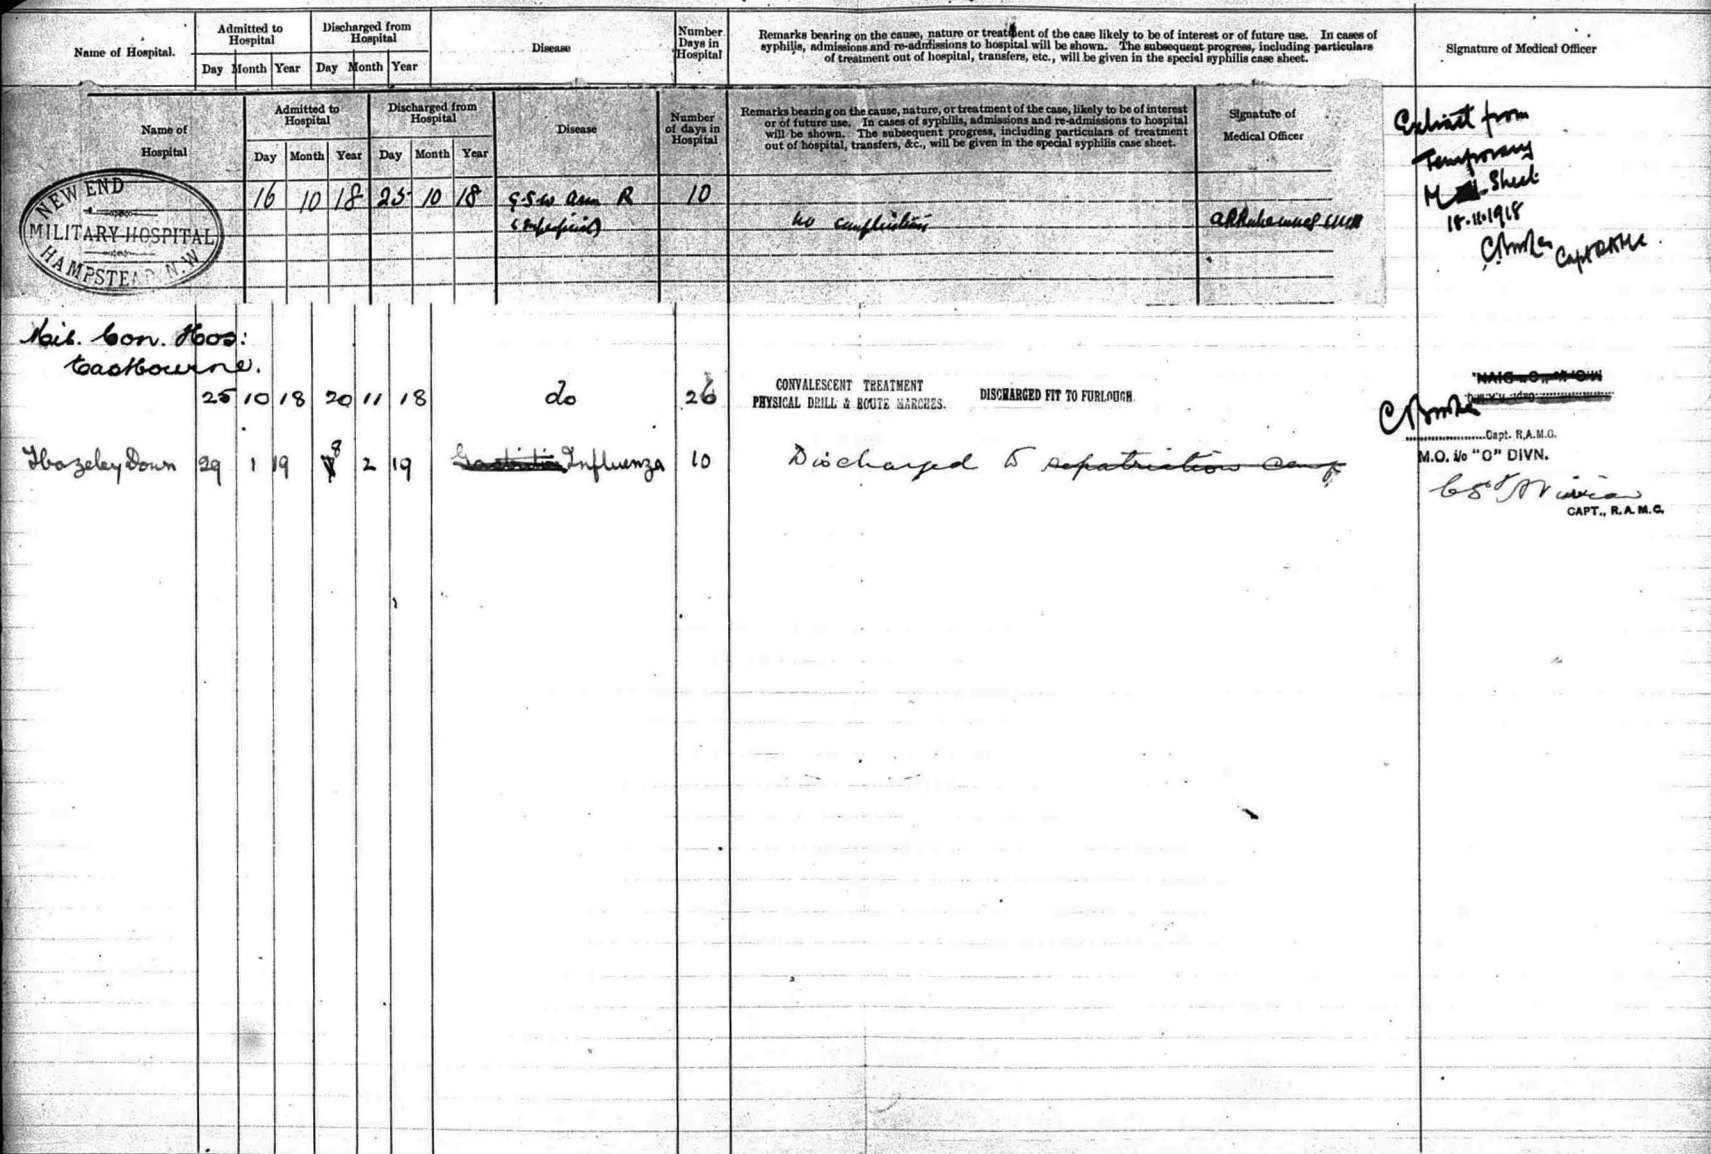 Name of Hospital.
Admitted to Hospital
Day Month Year
Discharged from Hospital
Day Month Year
Disease
Number Days in Hospital
Remarks bearing on the cause, nature or treatment of the case likely to be of interest or of future use. In cases of
syphilis, admissions and re-admissions to hospital will be shown. The subsequent progress, including particulars
of treatment out of hospital, transfers, etc., will be given in the special syphilis case sheet.
Signature of Medical Officer
Name of
Hospital
Admitted to
Hospital
Day Month Year
Discharged from
Hospital
Day Month Year
Disease
Number
of days in
Hospital
Remarks bearing on the cause, nature, or treatment of the case, likely to be of interest
or of future use. In cases of syphilis, admissions and re-admissions to hospital
will be shown. The subsequent progress, including particulars of treatment
out of hospital, transfers, &c., will be given in the special syphilis case sheet.
Signature of
Medical Officer
NEW END
MILITARY HOSPITAL
HAMPSTEAD N.W
16 10 18 25 10 18 G.S.W arm R 10
(superficial) no complications
Extract from
Temporary
Sheet
18.11.1918
Capt RAMC
Mil. Con. Hos:
Eastbourne.
25 10 18 20 11 18 do 26
CONVALESCENT TREATMENT
PHYSICAL DRILL & ROUTE MARCHES.
DISCHARGED FIT TO FURLOUGH.
Capt. R.A.M.C.
M.O. i/o "O" DIVN.
Hazeley Down 29 1 19 8 2 19 Influenza 10 Discharged to repatriation camp
CAPT., R.A.M.C.